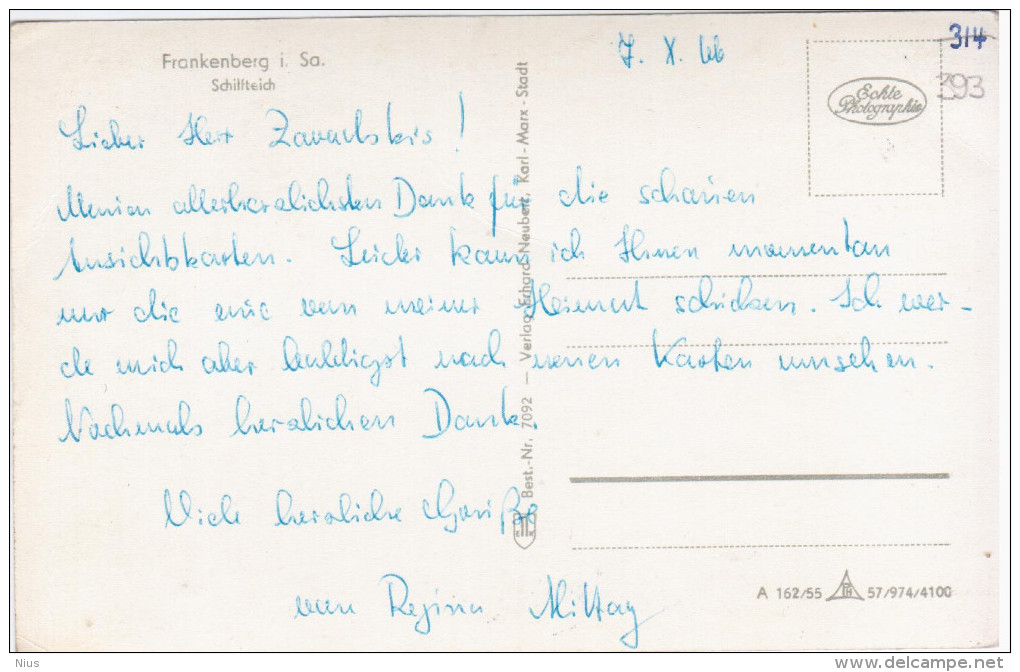 Frankenberg i. Sa.
Schilfteich
7. X. 66
314
393
Echte
Photographie
Lieber Herr
Meinen allerherzlichsten Dank für die schönen
Ansichtskarten. Leider kann ich Ihnen momentan
nur die eine von meiner Heimat schicken. Ich wer-
de mich aber baldigst nach neuen Karten umsehen.
Nochmals herzlichen Dank.
Viele herzliche Grüße
von Regina Mittag
Best.-Nr. 7092 — Verlag Erhard Neubert, Karl-Marx-Stadt
A 162/55 57/974/4100
Nius
delcampe.net